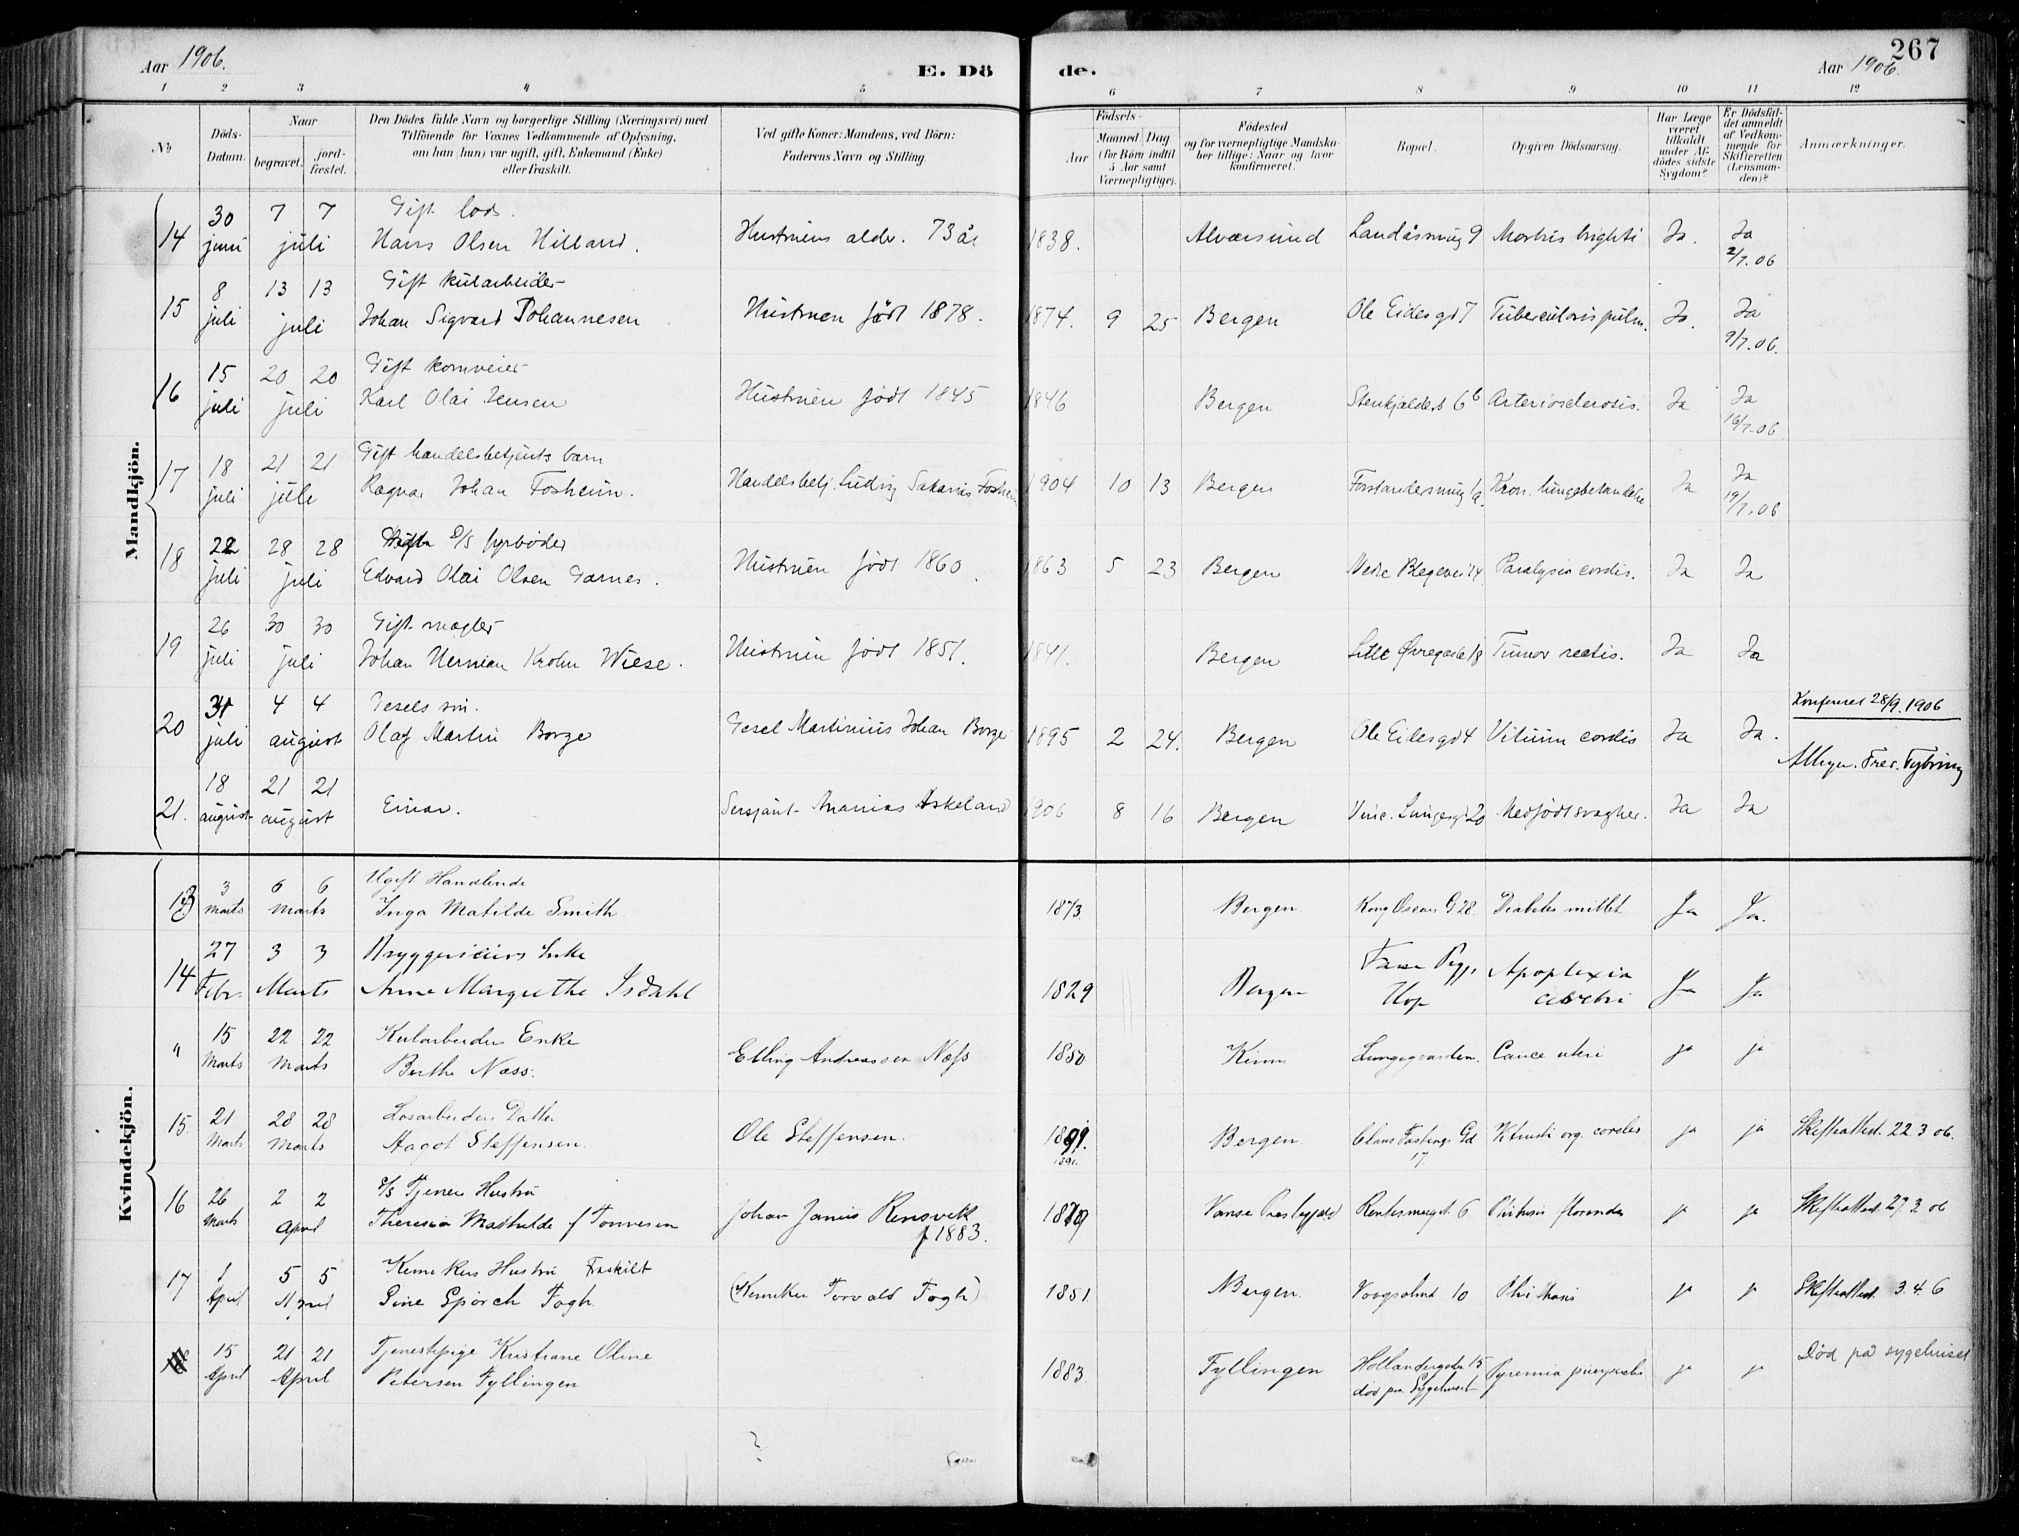 Aar 1906.
E. Dö
de.
Aar 1906.
267
1 2 3 4 5 6 7 8 9 10 11 12
No
Döds-Datum.
Naar
begravet.
jord-fæstet.
Den Dödes fulde Navn og borgerlige Stilling (Næringsvei) med
Tilföiende for Voxnes Vedkommende af Oplysning,
om han (hun) var ugift, gift, Enkemand (Enke)
eller fraskilt.
Ved gifte Koner: Mandens, ved Börn:
Faderens Navn og Stilling.
Födsels-
Aar
Maaned
Dag
(for Börn indtil
5 Aar samt
Værnepligtige).
Födested
og for værnepligtige Mandskaber tillige: Naar og hvor
konfirmeret.
Bopæl.
Opgiven Dödsaarsag.
Har Læge
været
tilkaldt
under Afdödes sidste
Sygdom?
Er Dödsfaldet anmeldt
af Vedkommende for
Skifteretten
(Lensmanden)?
Anmærkninger.
Mandkjön.
14 30 juni 7 7 juli Gift lods. Hans Olsen Hilland. Hustruens alder. 73 år 1838. Alværsund Landåsvei 9 Morbus brighti Ja. Ja 2/7.06
15 8 juli 13 13 juli Gift kularbeider Johan Sigvard Johannesen Hustruen født 1878. 1874. 9 25 Bergen Ole Eidesgd 7 Tuberculosis pulm. Ja. Ja 9/7.06.
16 15 juli 20 20 juli Gift kornveier Karl Olai Jensen Hustruen født 1845 1846 Bergen 6b Arteriosclerosis. Ja Ja 16/7.06
17 18 juli 21 21 juli Gift handelsbetjents barn Ragnar Johan Fosheim. Handelsbetj. Ludvig Sakarias Fosheim 1904 10 13 Bergen Kron. lungebetændelse Ja Ja 19/7.06
18 22 juli 28 28 juli D/S fyrbøder Edvard Olai Olsen Garnes. Hustruen født 1860. 1863 5 23 Bergen Nedre Blegevei 14 Paralysis cordis. Ja Ja
19 26 juli 30 30 juli Gift mægler Johan Herman Krohn Wiese. Hustruen født 1851. 1841. Bergen Lille Øvregade 18 Tumor rectis. Ja Ja
20 31 juli 4 4 august Gesels søn. Olaf Martin Borge Gesel Martinius Johan Borge 1895 2 24. Bergen Ole Eidesgd 4 Vitium cordis Ja Ja. Konfereret 28/9.1906
21. 18 august 21 21 august Einar. Sersjant Ananias Askeland 1906 8 16 Bergen Vinc. Lungesgd 20 Medfødt svaghet. Ja Ja
Kvindekjön.
13 3 Marts 6 6 Marts Ugift Handlende Inga Matilde Smith 1873. Bergen Kong Oscars G 28. Diabetes millet Ja Ja.
14 27 Febr. 3 3 Marts Bryggerieiers Enke Anne Margrethe Isdahl 1829 Bergen Hop Apoplexia cerebri Ja Ja
" 15 Marts 22 22 Marts Kularbeiders Enke Berthe Næss. Elling Andreassen Næss 1850 Kinn Lungegaarden. Cance uteri ja ja
15. 21 Marts 28 28 Marts Løsarbeiders Datter Aagot Steffensen. Ole Steffensen. 1899. 1891. Bergen. Claus Fastings Gd 17. org. cordis ja ja Skifteattest. 22.3 06.
16 26 Marts 2 2 April D/S Tjeners Hustru Theresia Mathilde f Tonnesen Johan Janus Rensvekk f 1883. 1879 Vanse Præstegjeld 6 Phthisis florendes ja ja Skifteattest. 27.3 06
17 1 April 5 5 April Kemikers Hustru Fraskilt Pine Spörch Fogh (Kemiker Torvald Fogh) 1851. Bergen. 10 Phthisis ja ja Skifteattest. 3.4.6
15 April 21 21 April Tjenestepige Kristiane Oline Petersen Fyllingen 1883. Fyllingen Hollendergaden 15 død paa Sygehuset Pyremia puerperalis ja ja Død på sygehuset
?